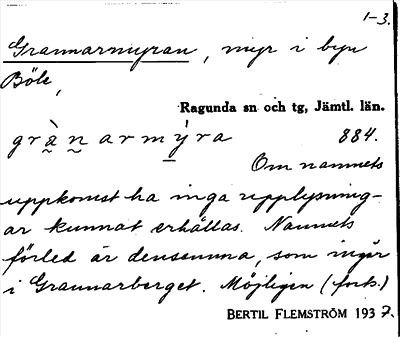 1-3.
Grannarmyran, myr i byn
Böle,
Ragunda sn och tg, Jämtl. län.
gràn̰armýra 884.
Om namnets
uppkomst ha inga upplysning-
ar kunnat erhållas. Namnets
förled är densamma, som ingår
i Grannarberget. Möjligen (forts.)
BERTIL FLEMSTRÖM 1937.